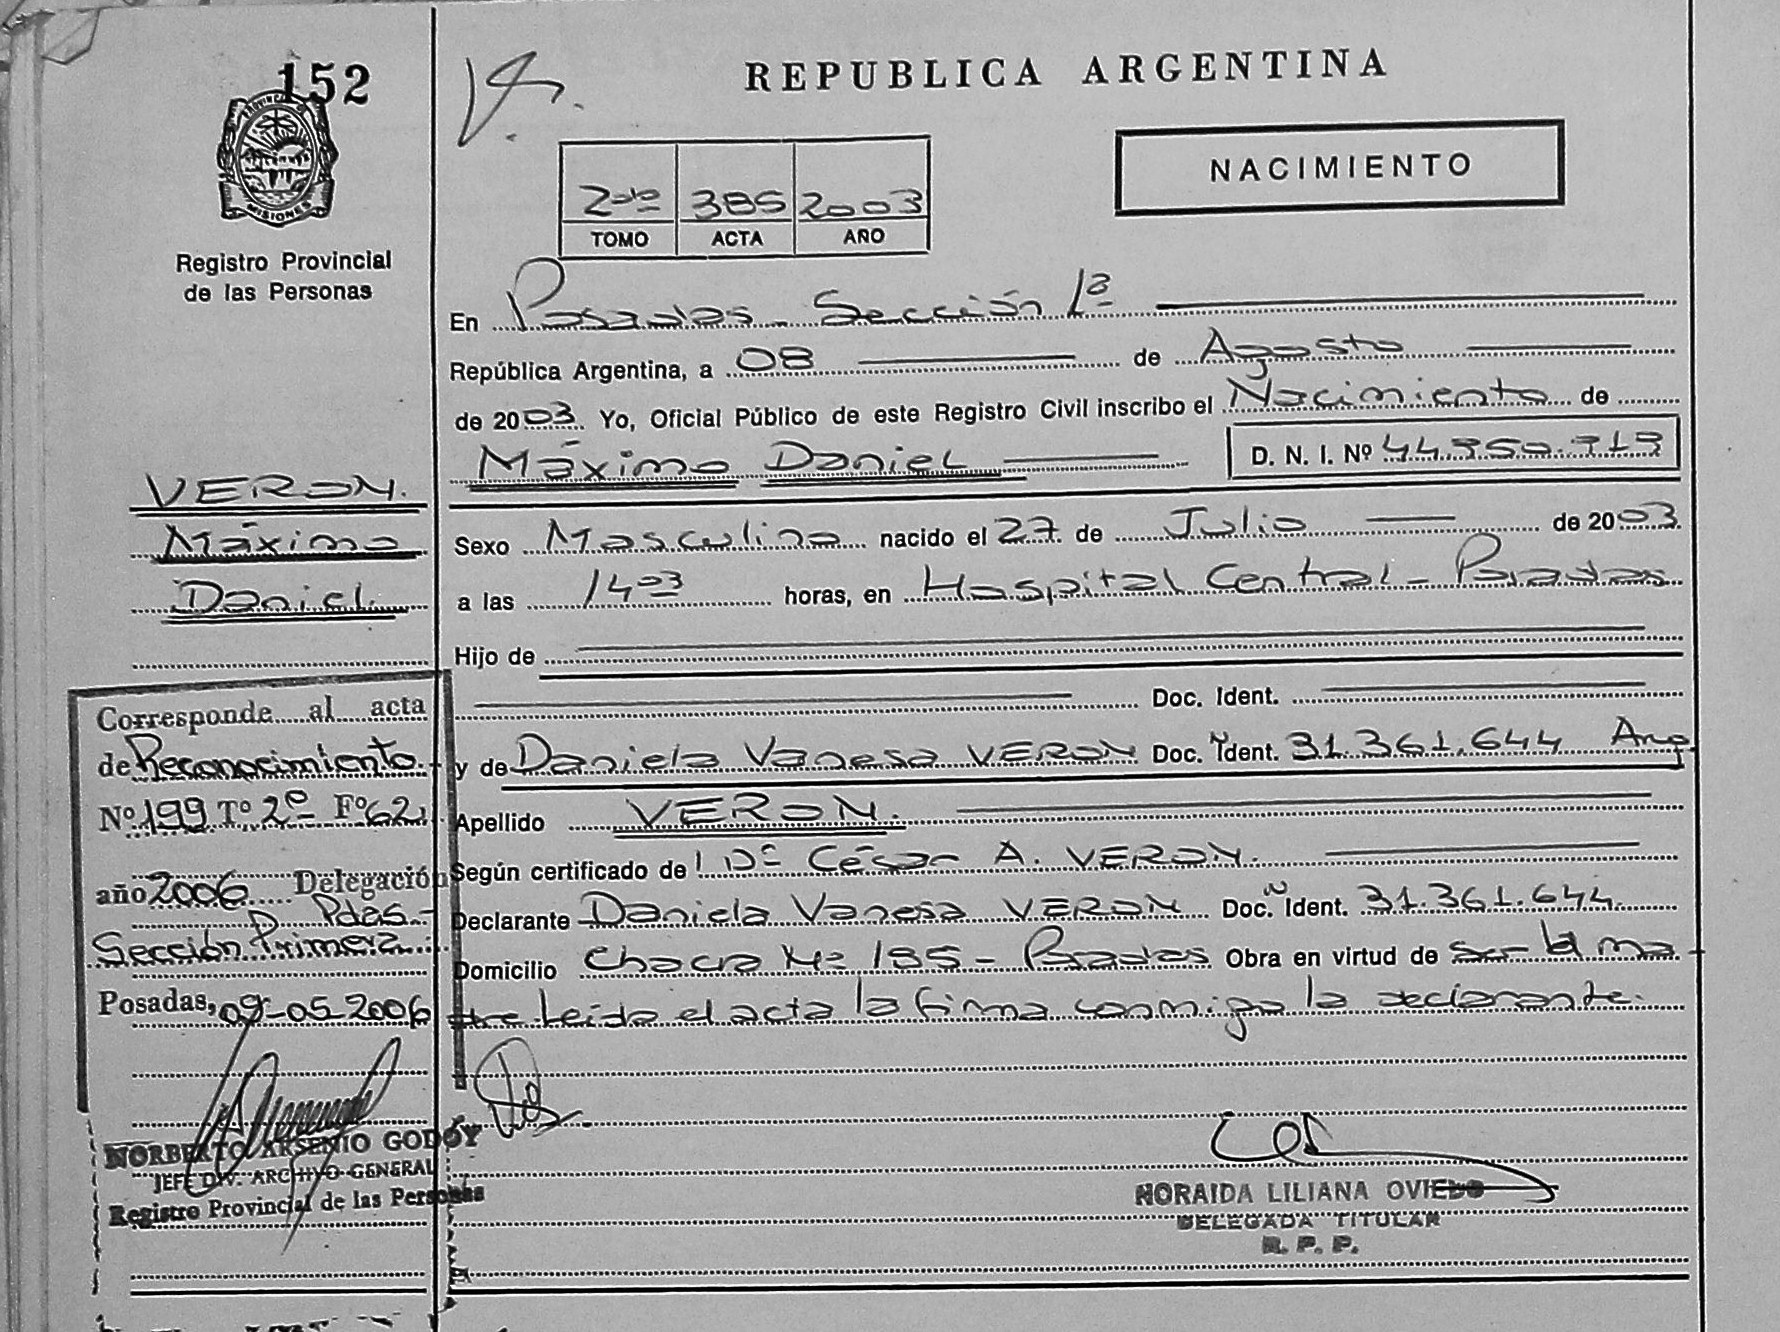 152
REPUBLICA ARGENTINA
PROVINCIA DE
MISIONES
Registro Provincial
de las Personas
NACIMIENTO
2do 385 2003
TOMO ACTA AÑO
En Posadas - Sección 1ª
República Argentina, a 08 de Agosto
de 2003. Yo, Oficial Público de este Registro Civil inscribo el Nacimiento de
Máximo Daniel
D. N. I. Nº 44.350.713
Sexo Masculino nacido el 27 de Julio de 2003.
a las 14 03 horas, en Hospital Central - Posadas
Hijo de
Doc. Ident.
y de Daniela Vanesa VERON Doc. Ident. 31.361.644 Arg
Apellido VERON.
Según certificado de Dº César A. VERON.
Declarante Daniela Vanesa VERON Doc. Ident. 31.361.644
Domicilio Chacra Nº 185 - Posadas Obra en virtud de ser la ma-
dre Leída el acta la firma conmigo la declarante.
NORAIDA LILIANA OVIEDO
DELEGADA TITULAR
R. P. P.
VERON.
Máximo
Daniel
Corresponde al acta
de Reconocimiento
Nº 199 Tº 2º Fº 62
año 2006 Delegación
Pdas.-
Sección Primera
Posadas, 09-05-2006
NORBERTO ARSENIO GODOY
JEFE DIV. ARCHIVO GENERAL
Registro Provincial de las Personas